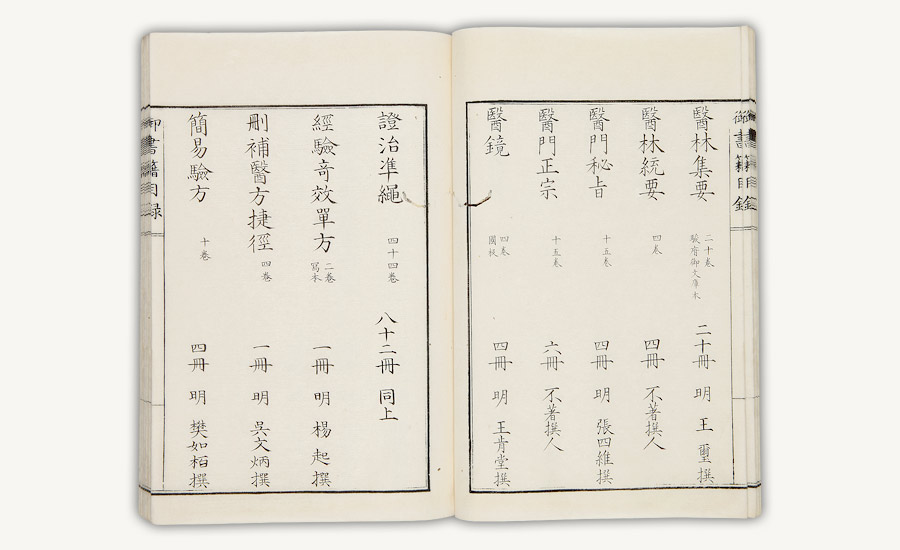 御書籍目錄
醫林集要 二十卷 駿府御文庫本 二十冊 明 王 璽 撰
醫林統要 四卷 四冊 不著撰人
醫門秘旨 十五卷 四冊 明 張四維撰
醫門正宗 十五卷 六冊 不著撰人
醫鏡 四卷 國板 四冊 明 王肯堂撰
證治準繩 四十四卷 八十二冊 同上
經驗奇效單方 二卷 寫本 一冊 明 楊 起 撰
刪補醫方捷徑 四卷 一冊 明 吳文炳撰
簡易驗方 十卷 四冊 明 樊如栢撰
御書籍目録